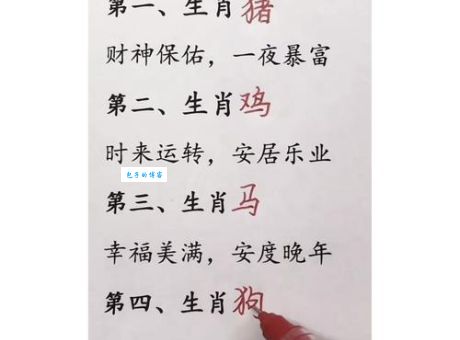 第一、生肖猪
财神保佑，一夜暴富
第二、生肖鸡
时来运转，安居乐业
包子的博客
第三、生肖马
幸福美满，安度晚年
第四、生肖狗